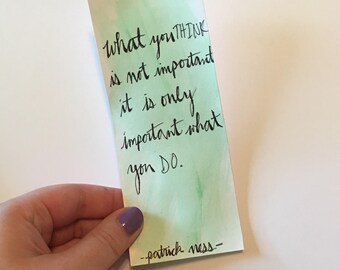 what you THINK
is not important
it is only
important what
you DO.
--patrick ness--